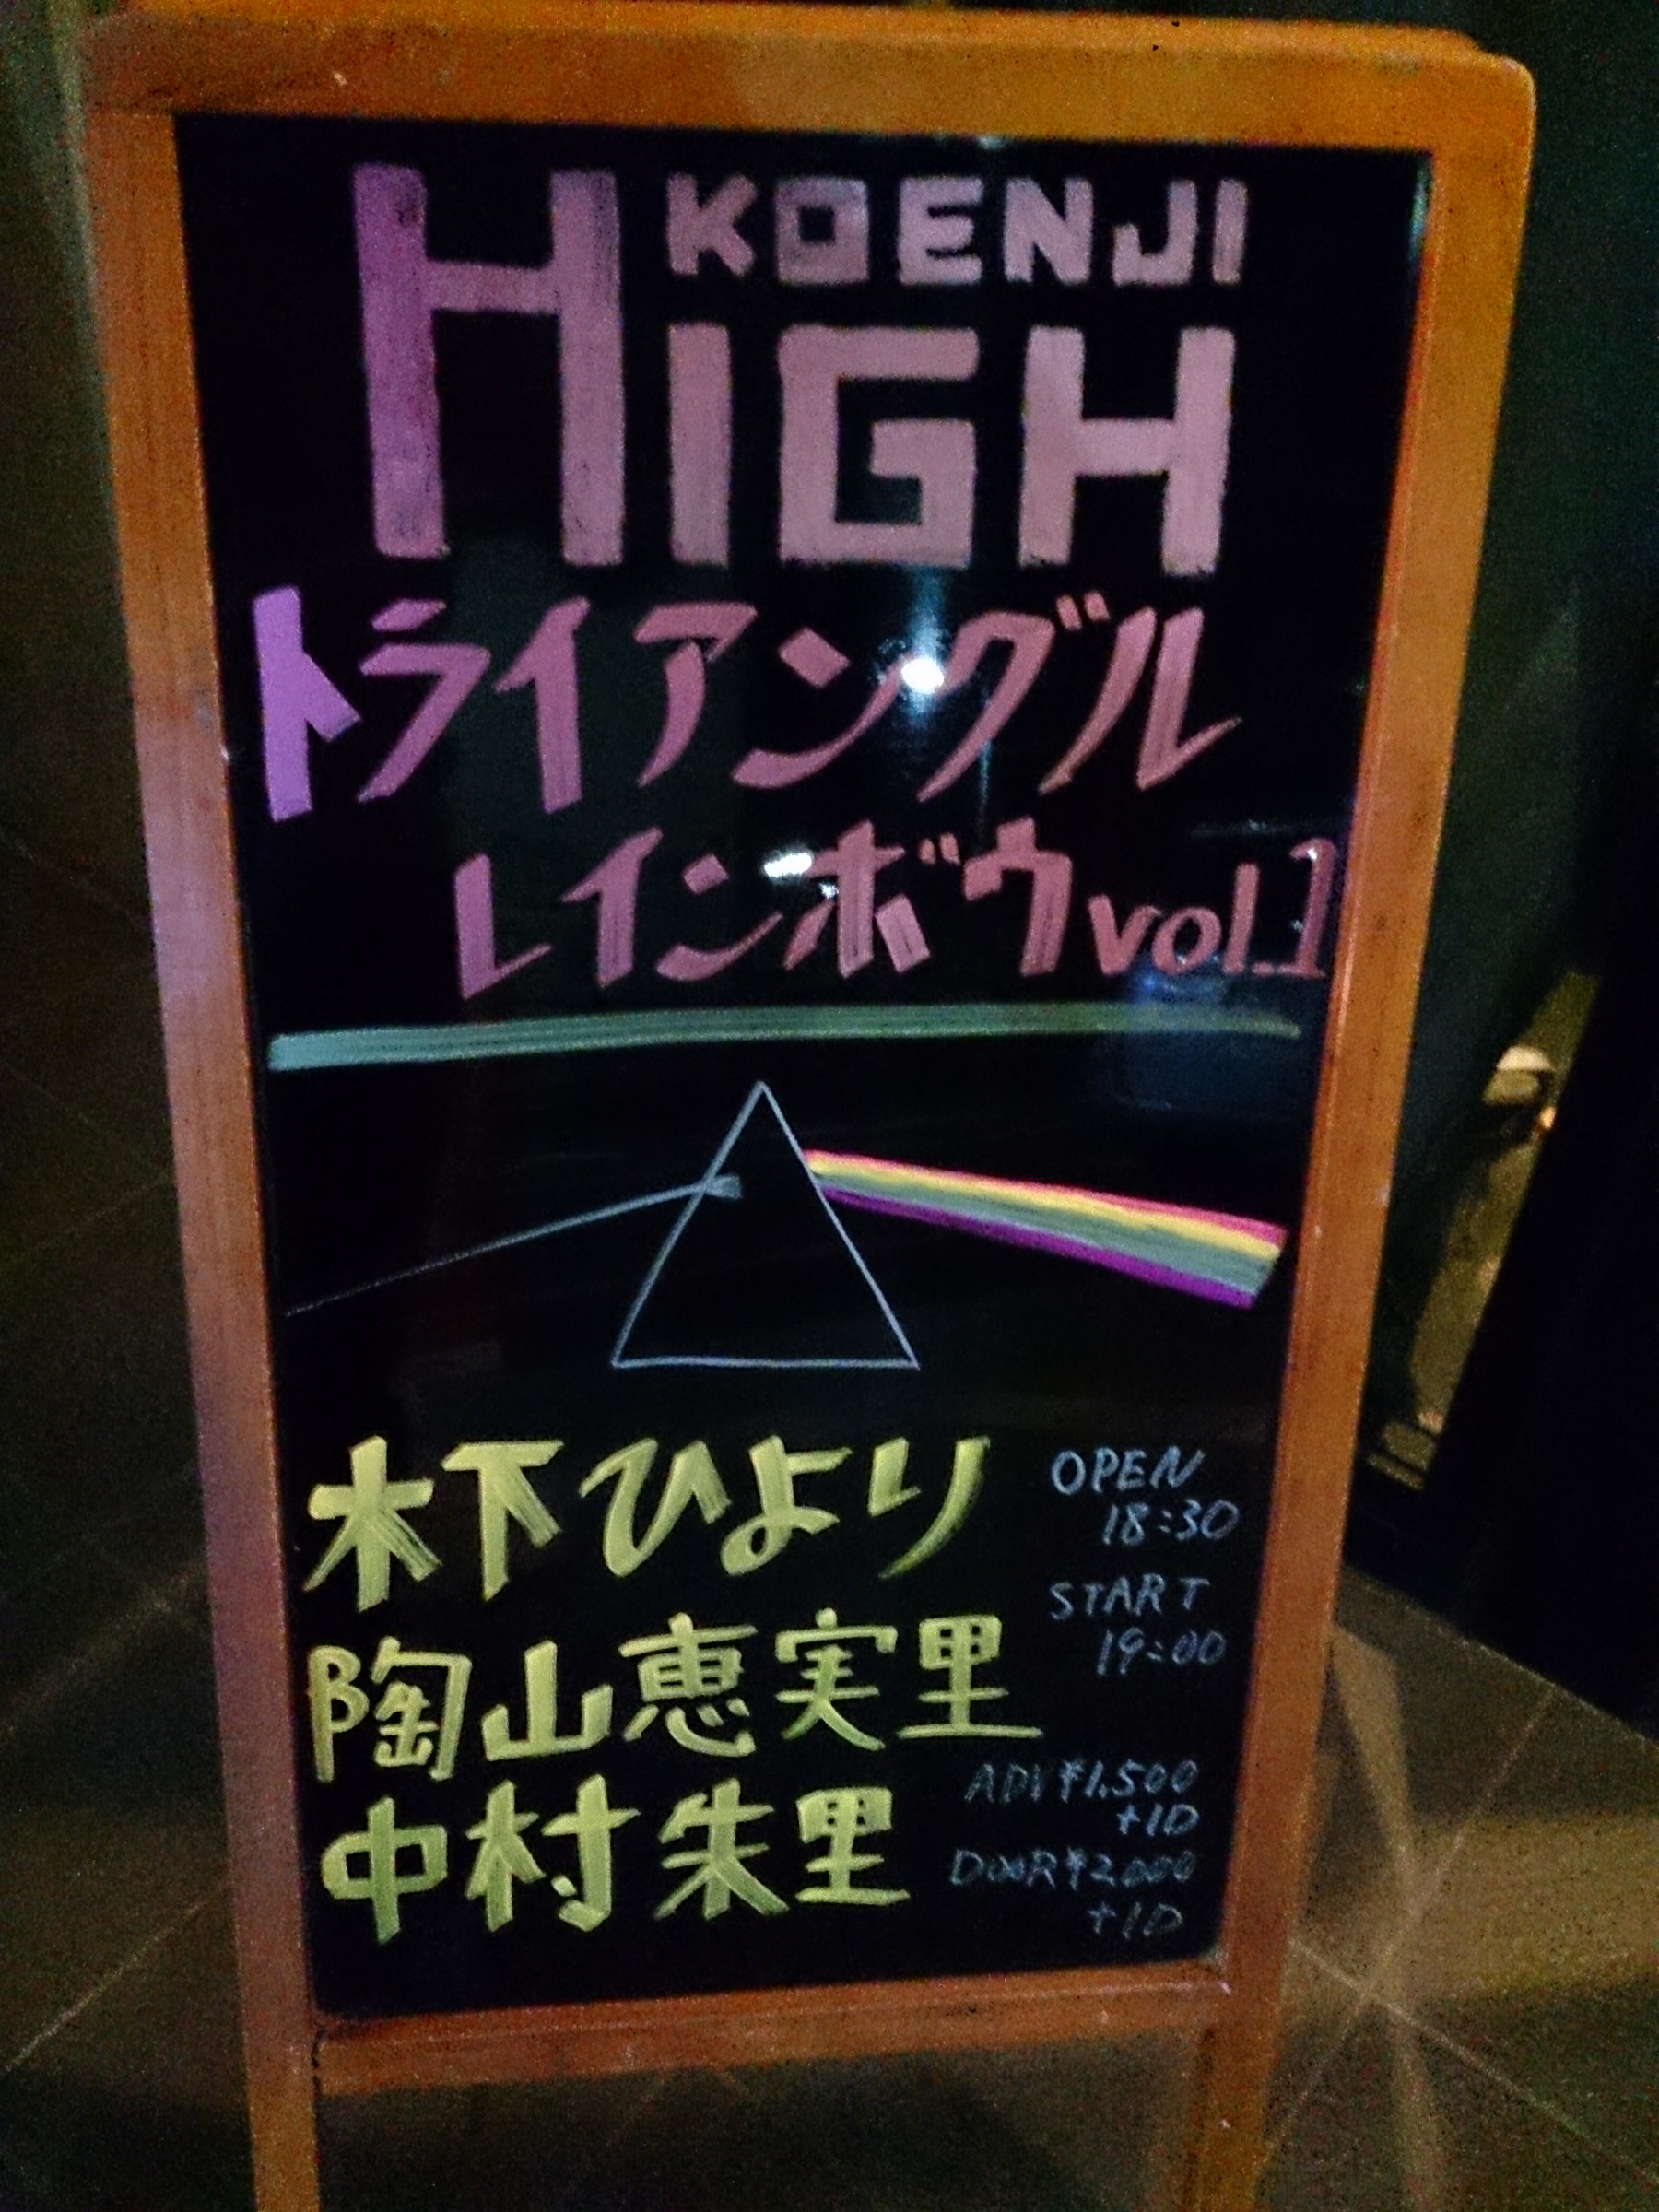 KOENJI
HIGH
トライアングル
レインボウvol.1
木下ひより
陶山恵実里
中村朱里
OPEN
18:30
START
19:00
ADV¥1,500
+1D
DOOR¥2,000
+1D